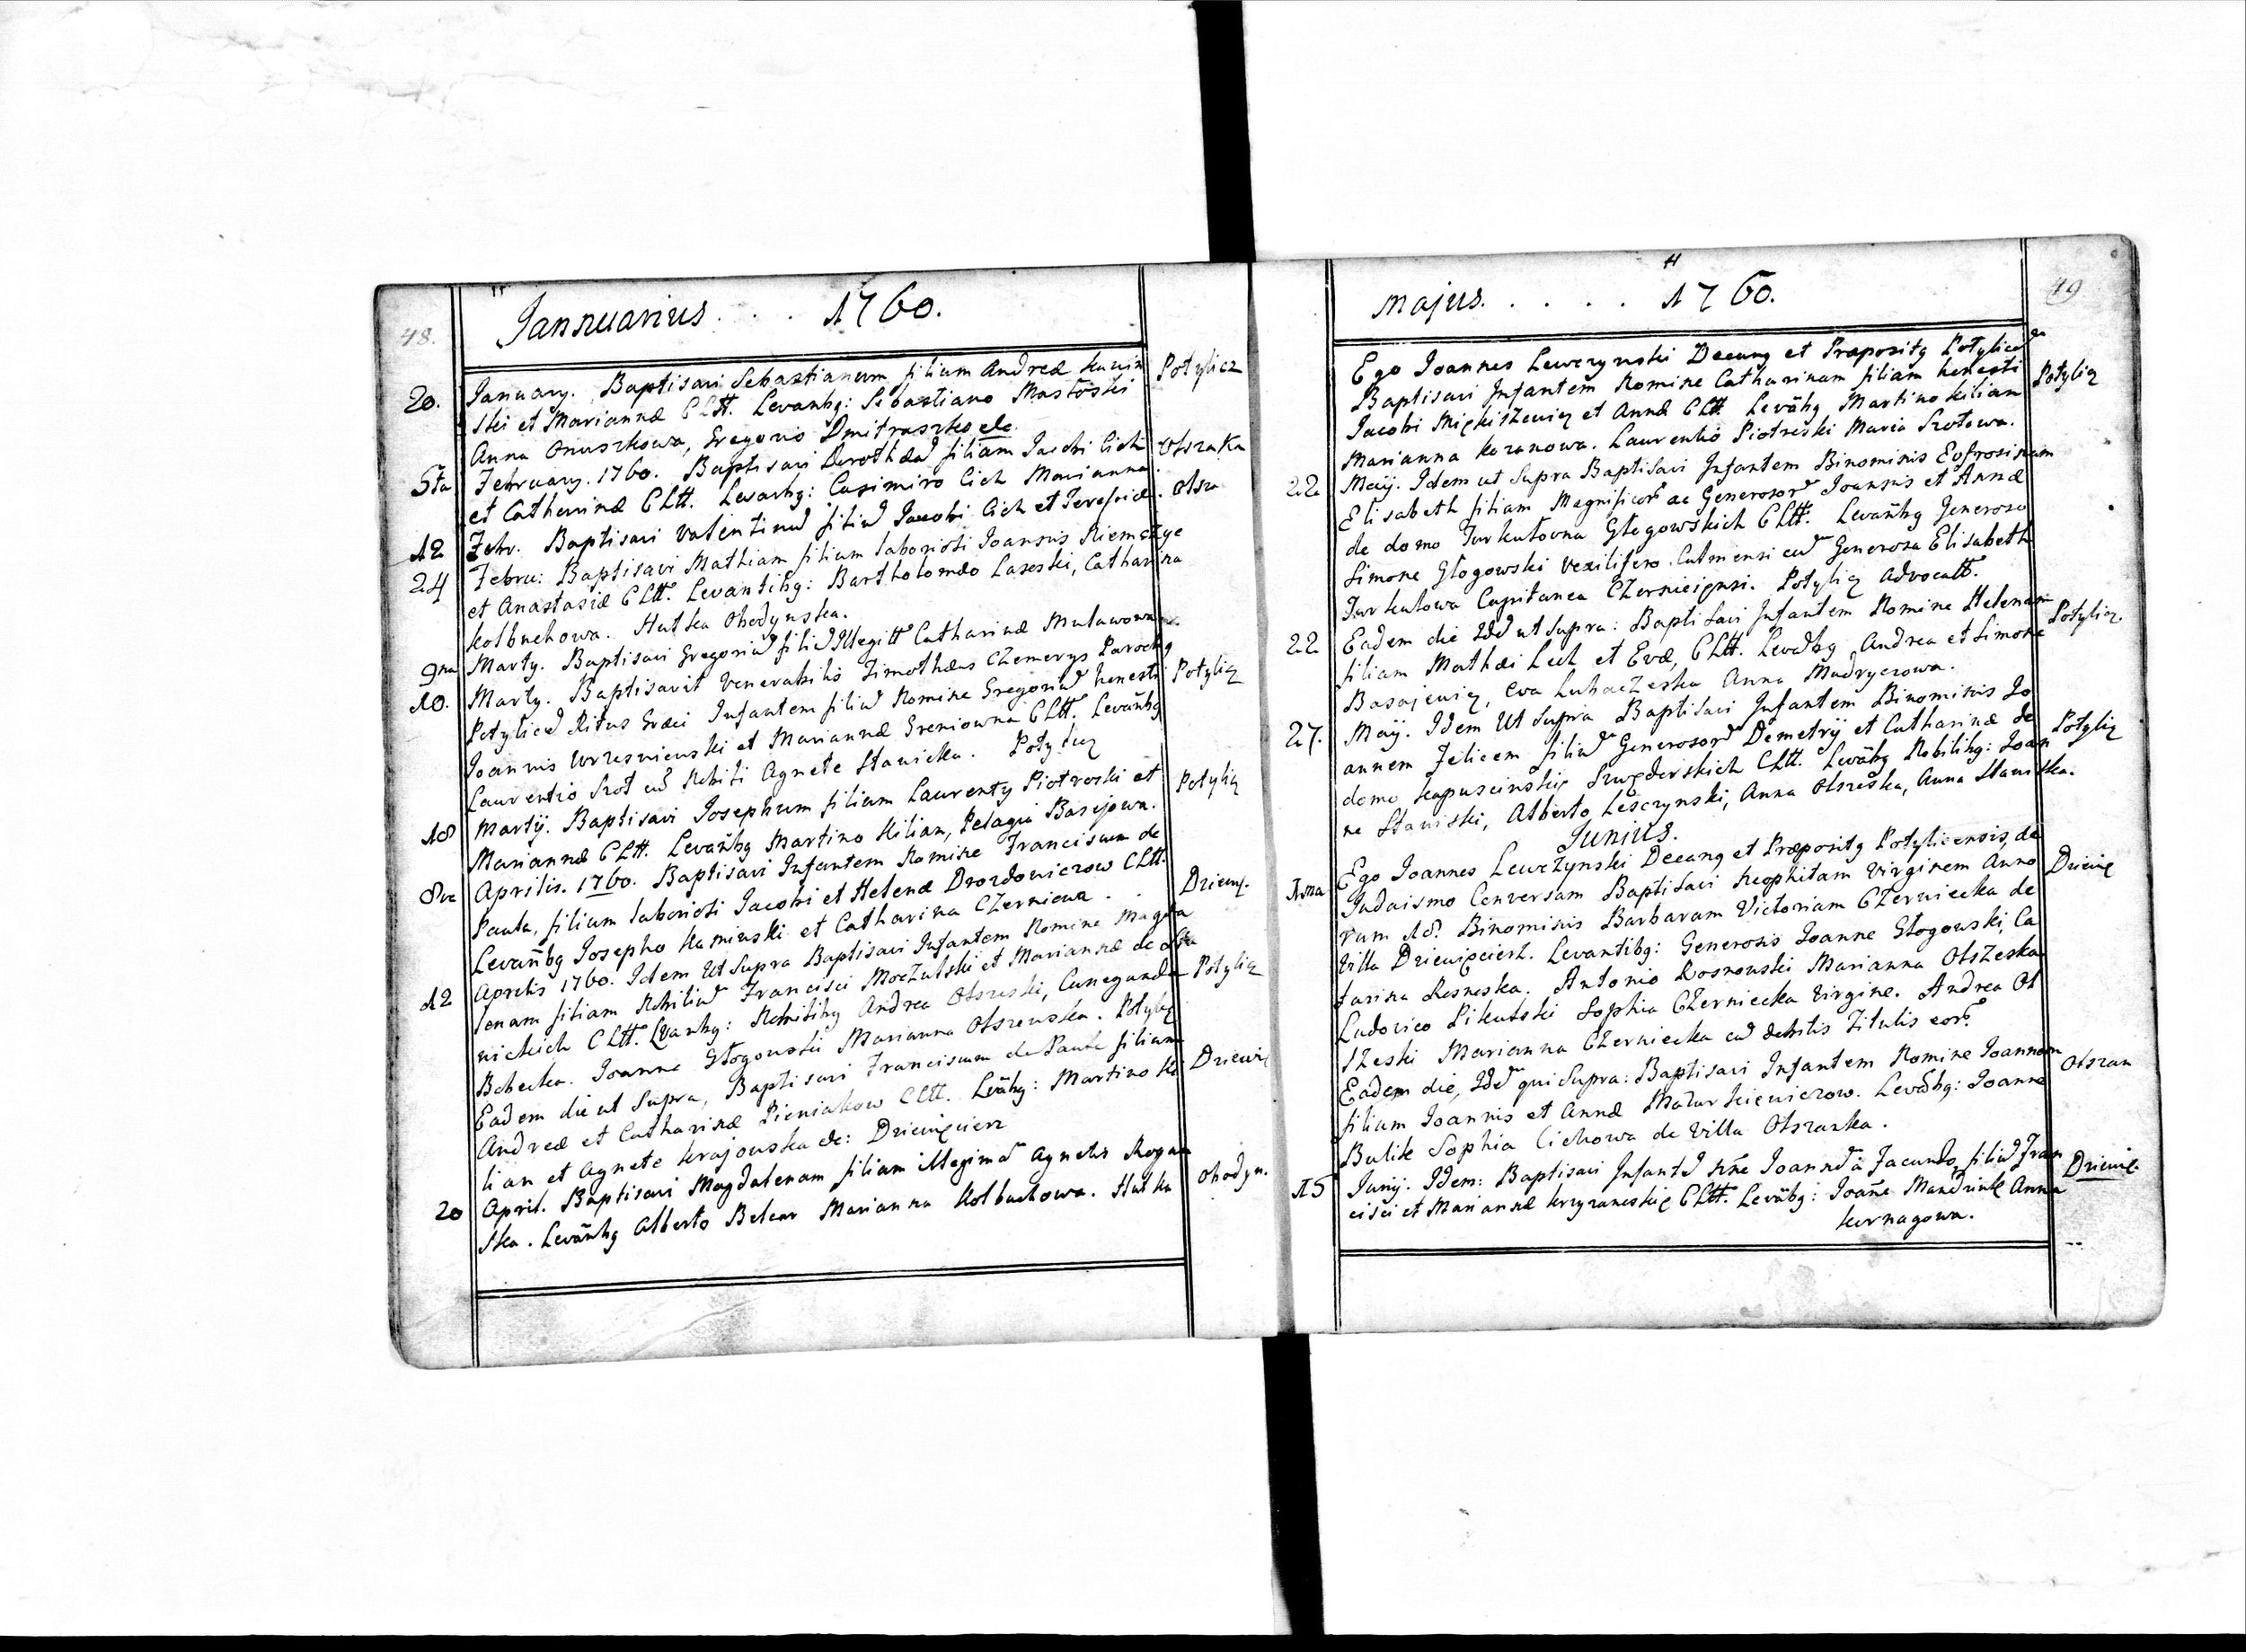 48.
Jannuarius . . . 1760.
20. January. Baptisavi Sebastianum filium Andreæ
ski et Mariannæ CLtt. Levanbg: Sebastiano Mastõski Potylicz
Anna Onuszkowa, Gregorio Dmitraszko etc.
5ta February. 1760. Baptisavi Dorothæã filiam Jacobi Cich Olszaka
et Catharinæ CLtt. Levanbg: Casimiro Cich Marianna.
12 Febr. Baptisavi Valentinũ filiũ Jacobi Cich et Teressiæ. Olsza
24 Febru: Baptisavi Mathiam filium laboriosi Joannis Niemczyc
et Anastasiæ CLtt. Levantibg: Bartholomæo Laseski, Catharina
Kolbuchowa. Hutka Obodynska.
9na Marty. Baptisavi Gregoriũ filiũ Illegitt Catharinæ
10. Marty. Baptisavit Venerabilis Timothæus Czemerys Parochg
Potylicẽ Ritus Græci Infantem filiũ Nomine Gregoriũ honesti Potylicz
Joannis Wrzesniewski et Mariannæ Greniowna CLtt. Levãnbg
Laurentio Szot cũ Nobili Agnete Stawicka. Potylicz
18 Martij. Baptisavi Josephum filium Laurenty Piotroski et Potylicz
Mariannæ CLtt. Levãnbg Martino Kilian, Pelagia Basijowa.
8va Aprilis. 1760. Baptisavi Infantem Nomine Franciscum de
Paula, filium laboriosi Jacobi et Helenæ Drozdowiczow CLtt. Dziewię.
Levan̄bg Josepho Kaminski et Catharina Czerniowa.
12 Aprilis 1760. Idem Ut Supra Baptisavi Infantem Nomine Magda
lenam filiam Nobiliũ Francisci Moczulski et Mariannæ de Potylicz
nickich CLtt. Lvanbg: Nobilibg Andrea Olszeski, Cunegunda
Bobecka. Joanne Głogowski Marianna Olszewska. Potylicz
Eadem die ut Supra, Baptisavi Franciscum de Paula filium
Andreæ et Catharinæ Pieniakow CLtt. Levãbg: Martino Ki Dziewię
lian et Agnete Krajowska etc: Dziewięcierz
20 April. Baptisavi Magdalenam filiam illegimã Agnetis Rogan
ska. Levãnbg Alberto Belear Marianna Kolbuchowa. Hutka Obodyn.
49
Majus. . . . . 1760.
Ego Joannes Lewczynski Decang et Præpositg Potylicẽ
Baptisavi Infantem Nomine Catharinam filiam honesti Potylicz
Jacobi Mickiszewicz et Annæ CLtt. Levãbg Martino Kilian
Marianna Kozanowa. Laurentio Piotreski Maria Szotowa.
22. Maij. Idem ut Supra Baptisavi Infantem Binominis Eufrosinam
Elisabeth filiam Magnificorũ ac Generosorũ Joannis et Annæ
de domo Turkułowna Głogowskich CLtt. Levãnbg Generoso
Simone Głogowski Vexilifero Culmensi cũ Generosa Elisabeth
Turkułowa Capitanea Czerniciensi. Potylicz Advocatt.
22 Eadem die Idẽ ut Supra: Baptisavi Infantem Nomine Helenam Potylicz.
filiam Mathæi Lech et Evæ, CLtt. Levãbg Andrea et Simone
Basajewicz, Eva Luhaczeska Anna Madryczowa.
27. Maij. Idem Ut Supra Baptisavi Infantem Binominis Jo
annem Felicem filiũ Generosorũ Demetrij et Catharinæ de Potylicz
domo Kapuscinskię CLtt. Levãbg Nobilibg: Joan
ne Stawiski, Alberto Lesczynski, Anna Olszeska, Anna Stawiska.
Junius.
1ma Ego Joannes Lewczynski Decang et Præpositg Potylicensis, de
Judaismo Conversam Baptisavi Neophitam Virginem Anno Dziewię
rum 18? Binominis Barbaram Victoriam Czerniecka de
Villa Dziewięcierz. Levantibg: Generosis Joanne Głogowski, Ca
tarina Resneska. Antonio Rosnowski Marianna Olszeska
Ludovico Pikulski Sophia Czerniecka Virgine. Andrea Ol
szeski Marianna Czerniecka cũ debitis Titulis eorũ.
Eadem die, Idẽ qui Supra: Baptisavi Infantem Nomine Joannem
filium Joannis et Annæ Mazurkiewiczow. Levãbg: Joanne Olszan
Bulik Sophia Cichowa de Villa Olszanka.
15 Junij. Idem: Baptisavi Infantẽ Nñe Joannẽ à Facundo, filiũ Fran Dziewię.
cisci et Mariannæ Krzyzaneskię CLtt. Levãbg: Joãne Mandziuk Anna
Kurnagowa.